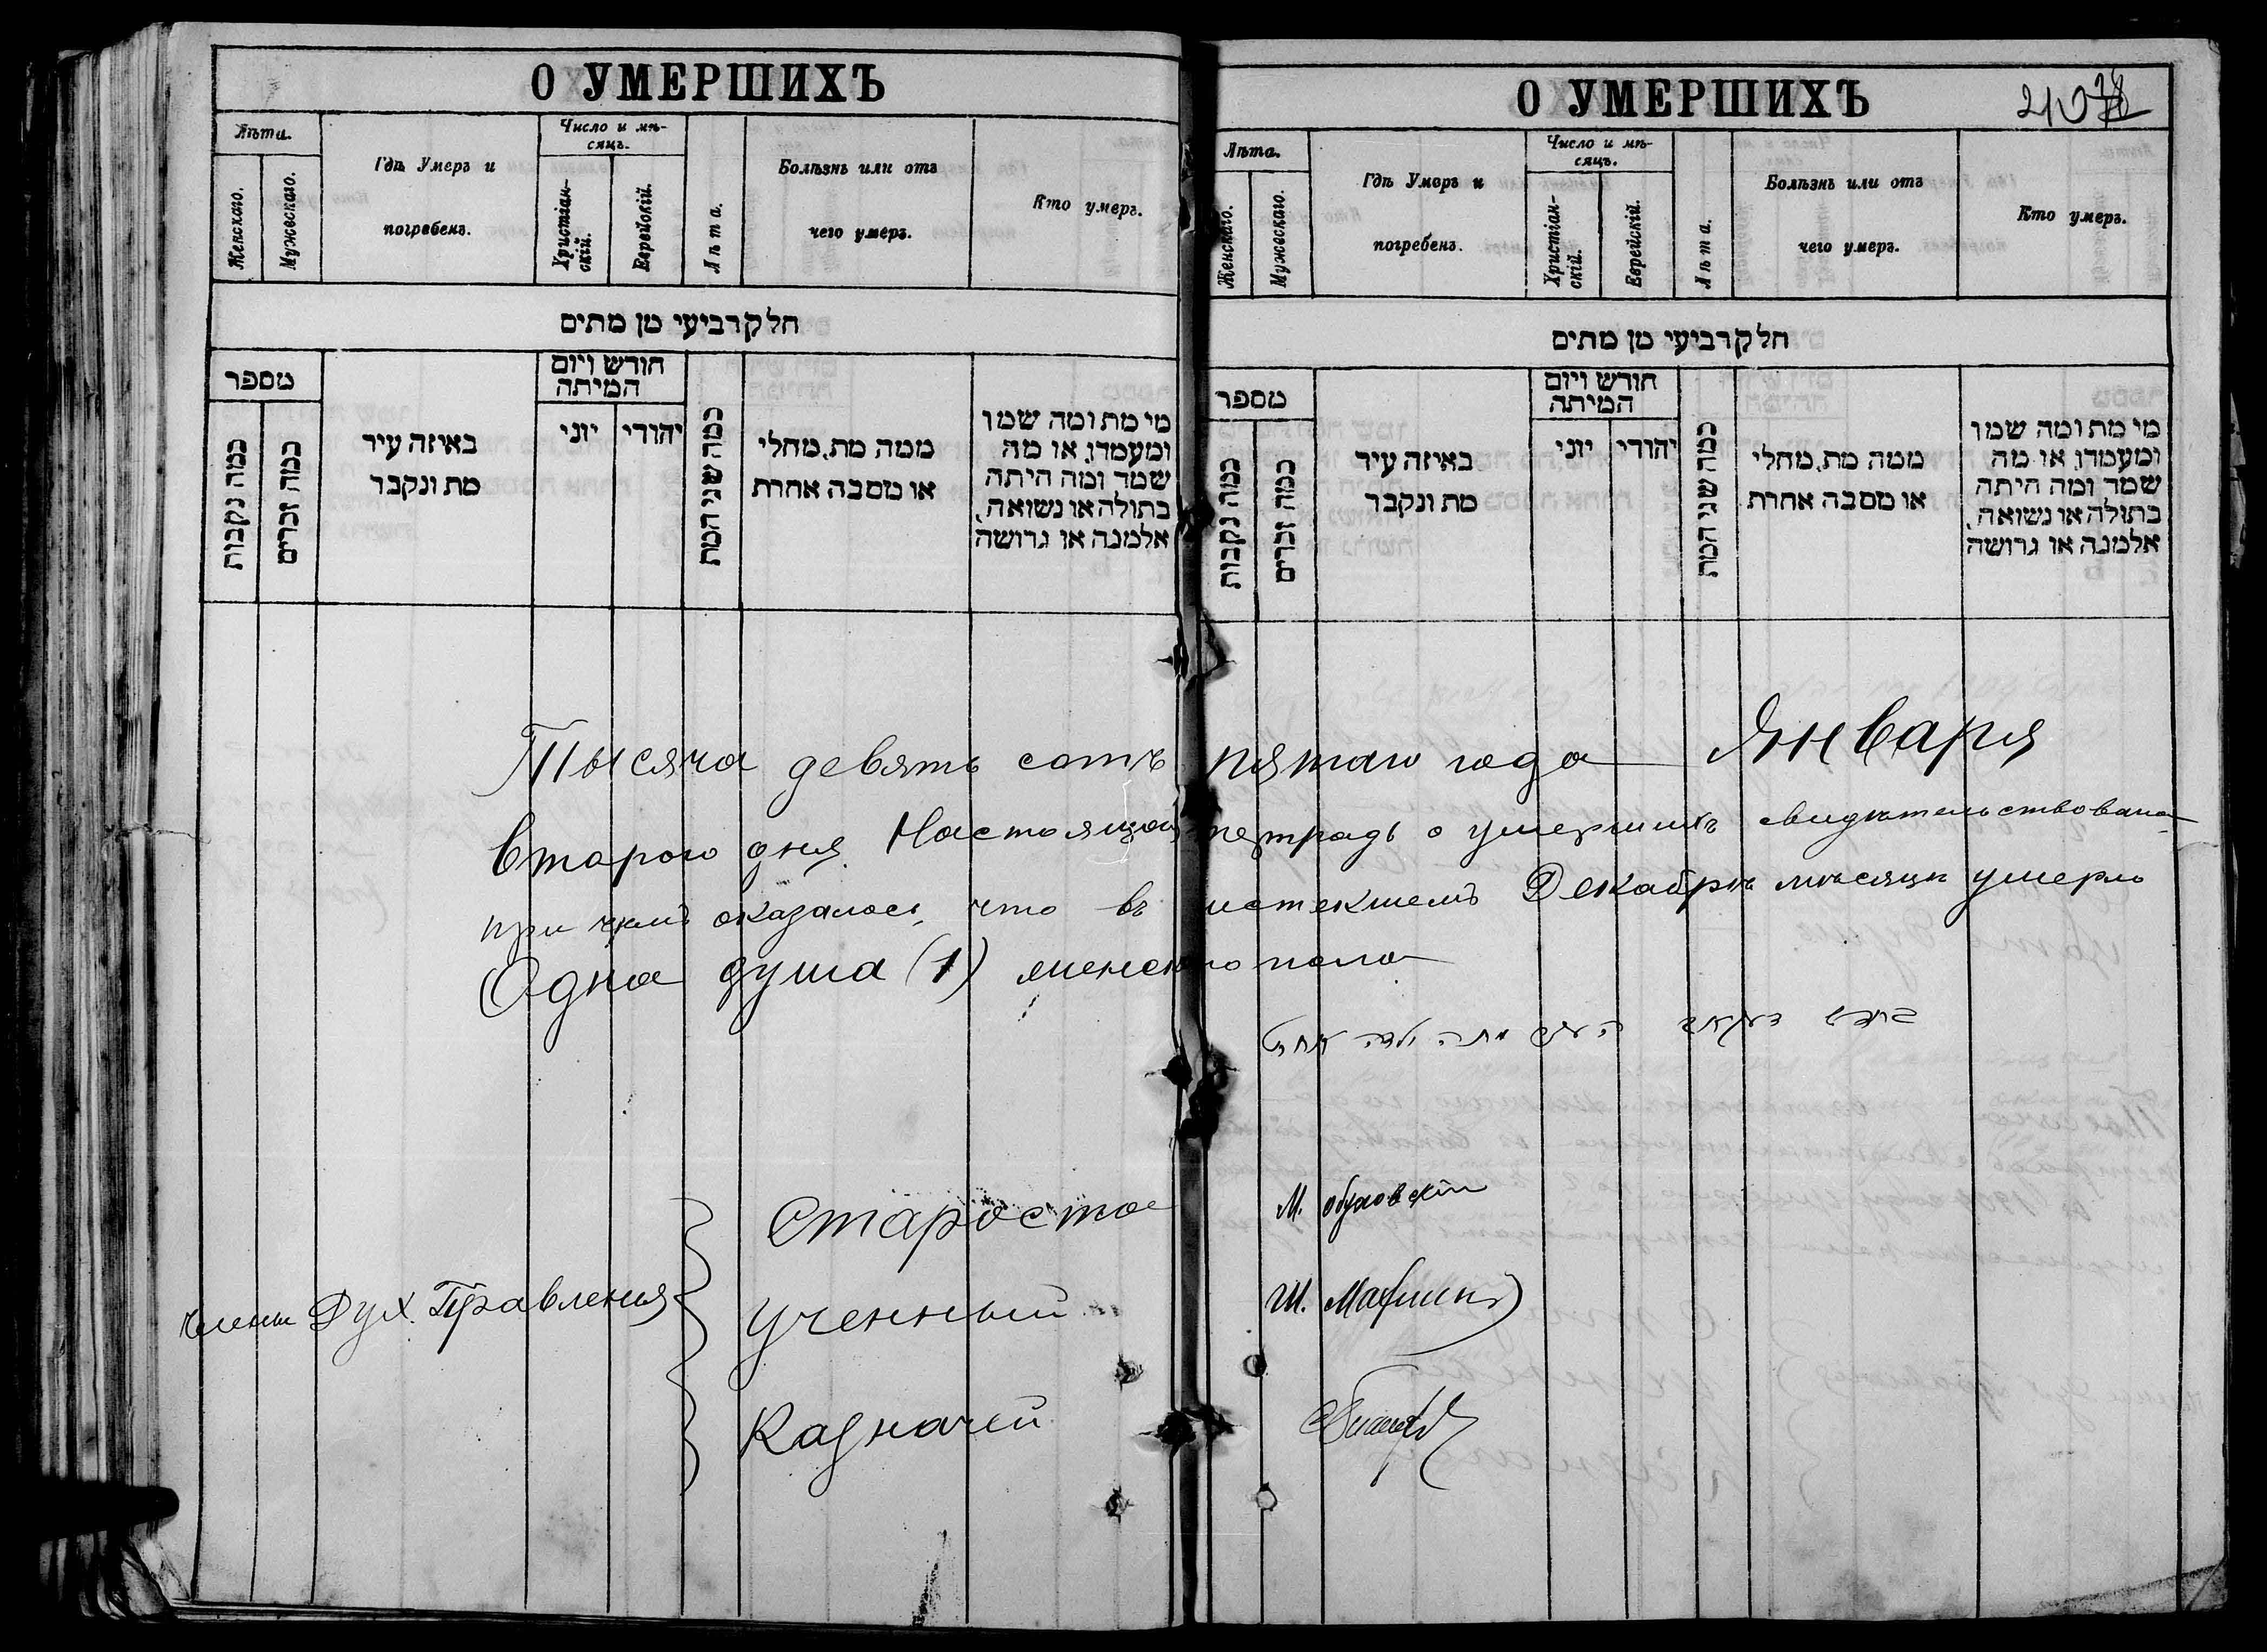 О УМЕРШИХЪ
Лѣта.
Женскаго.
Мужескаго.
Гдѣ Умеръ и
погребенъ.
Число и мѣ-
сяцъ.
Христіан-
скій.
Еврейскій.
Лѣта.
Болѣзнь или отъ
чего умеръ.
Кто умеръ.
חלק רביעי מן מתים
מספר
כמה נקבות
כמה זכרים
באיזה עיר
מת ונקבר
חודש ויום
המיתה
יוני
יהודי
כמה שני המת
ממה מת, מחלי
או מסבה אחרת
מי מת ומה שמו
ומעמדו, או מה
שמה ומה היתה
בתולה או נשואה,
אלמנה או גרושה
О УМЕРШИХЪ
Лѣта.
Женскаго.
Мужескаго.
Гдѣ Умеръ и
погребенъ.
Число и мѣ-
сяцъ.
Христіан-
скій.
Еврейскій.
Лѣта.
Болѣзнь или отъ
чего умеръ.
Кто умеръ.
חלק רביעי מן מתים
מספר
כמה נקבות
כמה זכרים
באיזה עיר
מת ונקבר
חודש ויום
המיתה
יוני
יהודי
כמה שני המת
ממה מת, מחלי
או מסבה אחרת
מי מת ומה שמו
ומעמדו, או מה
שמה ומה היתה
בתולה או נשואה,
אלמנה או גרושה
Тысяча девять сотъ пятаго года Января
Втораго дня Настоящая тетрадь о умершихъ свидѣтельствована
при чемъ оказалось, что въ истекшемъ Декабрѣ мѣсяцѣ умерло
Одна душа (1) женскаго пола
Староста М. Обуховскій
Члены Дух. Правленія Ученный Ш.
Казначей